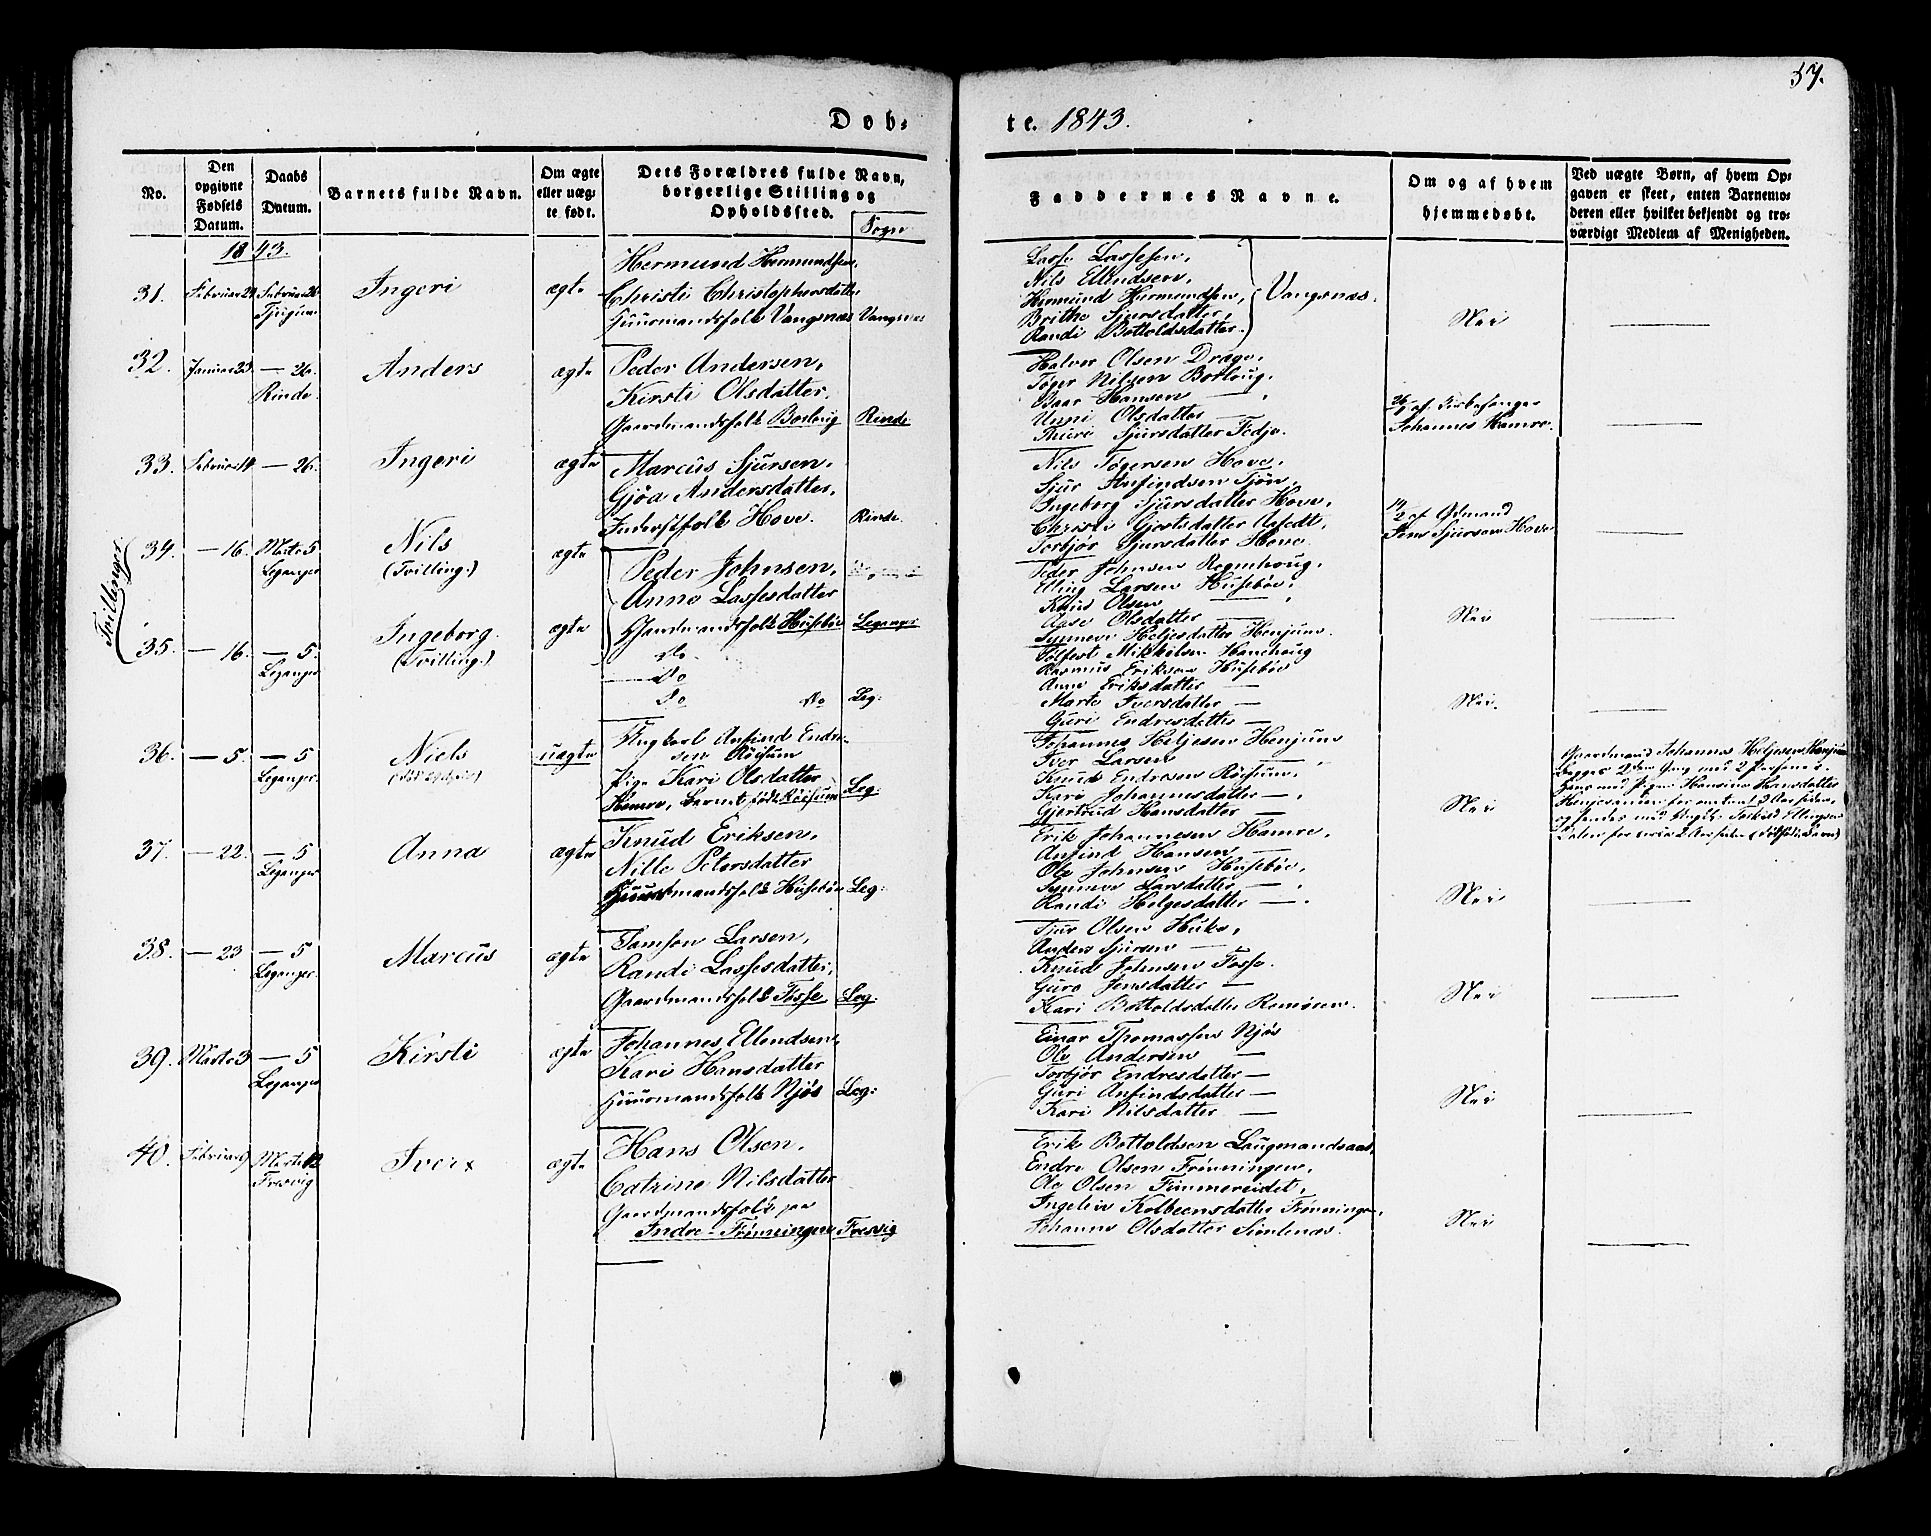 57.
Døb-
te. 1843.
No.
Den opgivne Fødsels Datum.
Daabs Datum.
Barnets fulde Navn.
Om ægte eller uægte født.
Dets Forældres fulde Navn, borgerlige Stilling og Opholdssted.
Sogn
Faddernes Navne.
Om og af hvem hjemmedøbt.
Ved uægte Børn, af hvem Opgaven er skeet, enten Barnemoderen eller hvilket bekjendt og troværdigt Medlem af Menigheden.
1843.
31.
Februar
Februar 26
Tjugum
Ingeri
ægte
Hermund Hermundsen,
Christi Christophersdatter
Huusmandsfolk Vangsnæs
Vangsnæs
Lasse Lassesen,
Nils Ellendsen,
Hermund Hermundsen,
Brithe Sjursdatter,
Randi Bottoldsdatter.
Vangsnæs.
Nei
32.
Januar 23.
— 26.
Rinde.
Anders
ægte
Peder Andersen,
Kirsti Olsdatter,
Gaardmandsfolk Borlaug
Rinde
Halvor Olsen Drage,
Tøger Nilsen Borlaug,
Baar Hansen — ,
Unni Olsdatter —
Thuri Sjursdatter Fedje.
26/1 af Kirkesanger
Johannes Hamre.
33.
Februar 14
— 26.
Ingeri
ægte
Marcus Sjursen,
Gjøa Andersdatter,
Inderstfolk Hove.
Rinde.
Nils Tøgersen Hove,
Sjur Anfindsen Tjøn,
Ingeborg Sjursdatter Hove,
Christi Gjertsdatter Aafedt,
Torbjør Sjursdatter Hove.
14/2 af Gdmand
Jens Sjursen Hove
Tvillinger.
34.
— 16.
Marts 5
Leganger
Nils
(Tvilling.)
ægte
Peder Johnsen,
Anna Lassesdatter
Gaardmandsfolk Husebøe
Leganger
Peder Johnsen Rognhoug,
Elling Larsen Husebøe,
Knud Olsen — ,
Aase Olsdatter —
Synneve Heljesdatter Henjum.
Nei
35.
— 16.
— 5.
Leganger
Ingeborg.
(Tvilling.)
ægte
Do
Do
Do Do
Leg:
Tolfest Mikkelsen Hamehaug
Rasmus Eriksen Husebøe
Anne Eriksdatter —
Marte Iversdatter —
Guri Endresdatter —
Nei.
36.
— 5.
— 5
Leganger.
Niels
uægte
Ungkarl Anfind Endre-
sen Röisum
Pige Kari Olsdatter
Hamre, Barnet født Röisum
Leg:
Johannes Heljesen Henjum
Iver Larsen — ,
Knud Endresen Röisum,
Kari Johannesdatter — ,
Gjertrud Hansdatter —
Nei
Gaardmand Johannes Heljesen Henjum
37.
— 22.
— 5
Leganger
Anna
ægte
Knud Eriksen,
Nille Petersdatter
Huusmandsfolk Husebøe
Leg:
Erik Johannesen Hamre,
Anfind Hansen —
Ole Johnsen Husebøe,
Synneve Larsdatter — ,
Randi Helgesdatter — .
Nei
38.
— 23
— 5
Leganger.
Marcus
ægte
Samson Larsen,
Randi Lassesdatter,
Gaardmandsfolk Fosse,
Leg:
Sjur Olsen Huke,
Anders Sjursen —
Knud Johnsen Fosse.
Guro Jensdatter —
Kari Bottoldsdatter Romören.
Nei
39.
Marts 3
— 5
Leganger
Kirsti
ægte
Johannes Ellendsen,
Kari Hansdatter
Huusmandsfolk Njøs
Leg:
Einar Thomassen Njøs
Ole Andersen —
Torbjør Endresdatter —
Guri Anfindsdatter —
Kari Nilsdatter —
Nei
40.
Februar 9
Marts 12
Fresvig
Iver
ægte
Hans Olsen,
Catrine Nilsdatter
Gaardmandsfolk paa
Indre-Frønningen
Fresvig
Erik Bottoldsen Laugmandsaas,
Endre Olsen Frønningen,
Ole Olsen Timmereidet,
Ingeleiv Kolbeensdatter Frønningen,
Johanne Olsdatter Simlenæs.
Nei